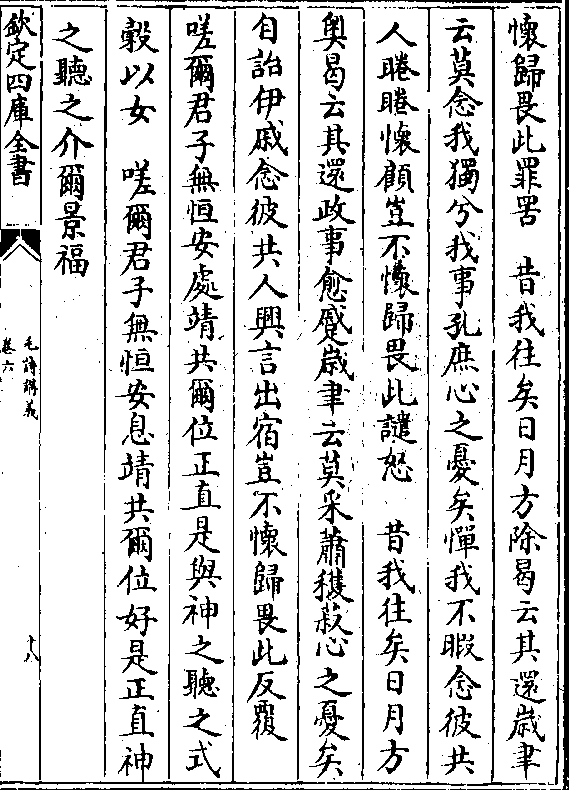 懷歸畏此罪罟　昔我往矣日月方除曷云其還歲聿
云莫念我獨兮我事孔庶心之憂矣憚我不暇念彼共
人睠睠懷顧豈不懷歸畏此譴怒　昔我往矣日月方
奥曷云其還政事愈蹙歲聿云莫采蕭穫菽心之憂矣
自詒伊戚念彼共人興言出宿豈不懷歸畏此反覆
嗟爾君子無恒安處靖共爾位正直是與神之聽之式
榖以女　嗟爾君子無恒安息靖共爾位好是正直神
之聽之介爾景福
欽定四庫全書
毛詩講義
卷六
十八